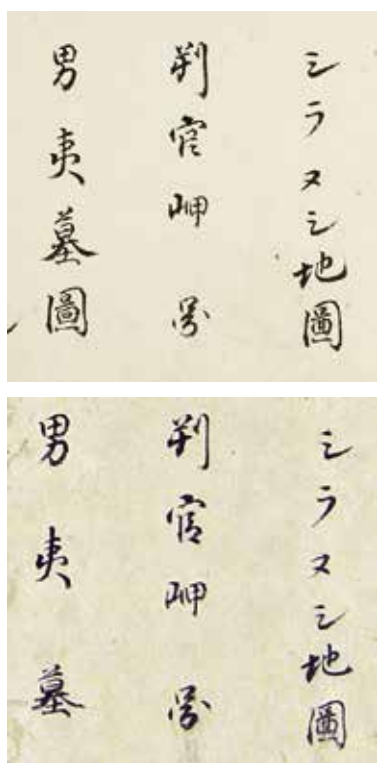 シラヌシ地圖
判官岬
男夷墓圖
シラヌシ地圖
判官岬
男夷墓